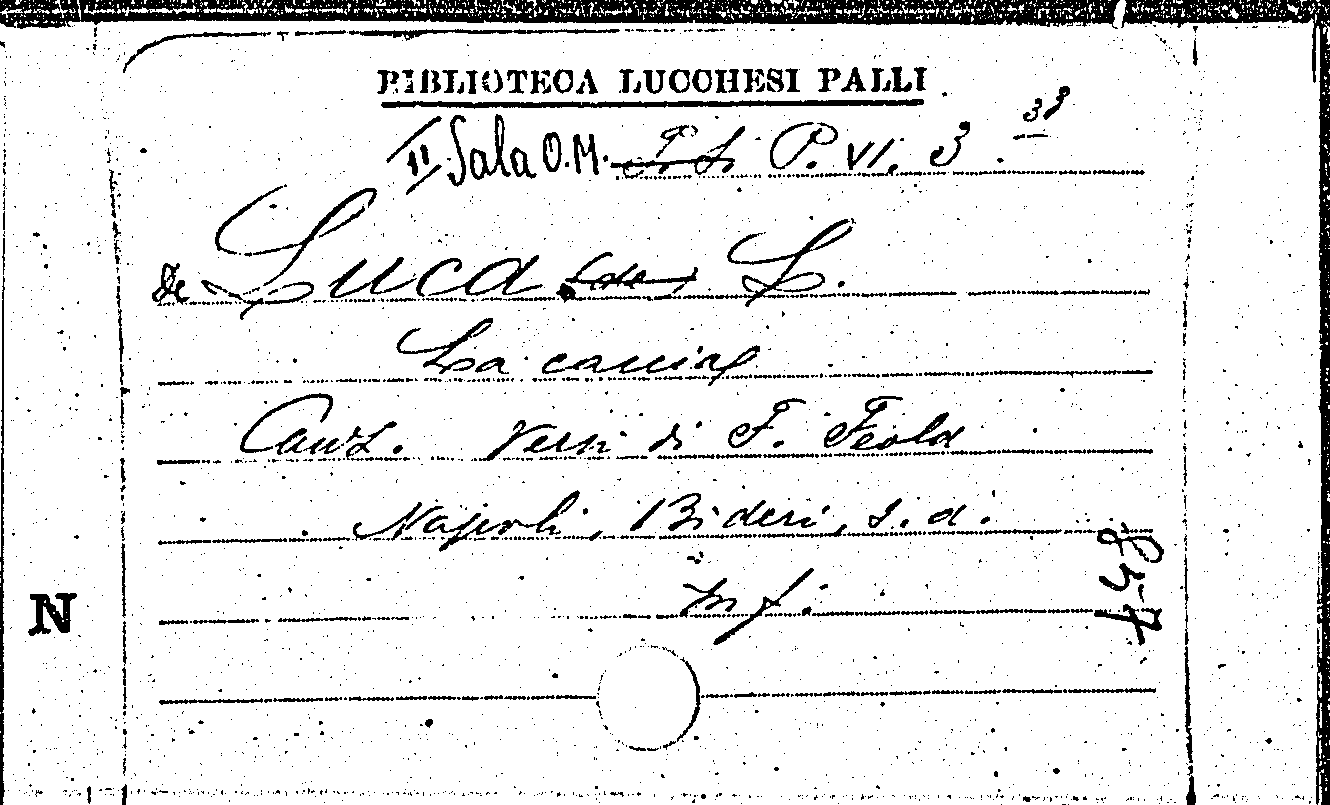 BIBLIOTECA LUCCHESI PALLI
II Sala O.M. P. VI. 3. 38
de Luca (de) L.
La
Canz. Versi di F. Feola
Napoli, Bideri, s.d.
in f.
N